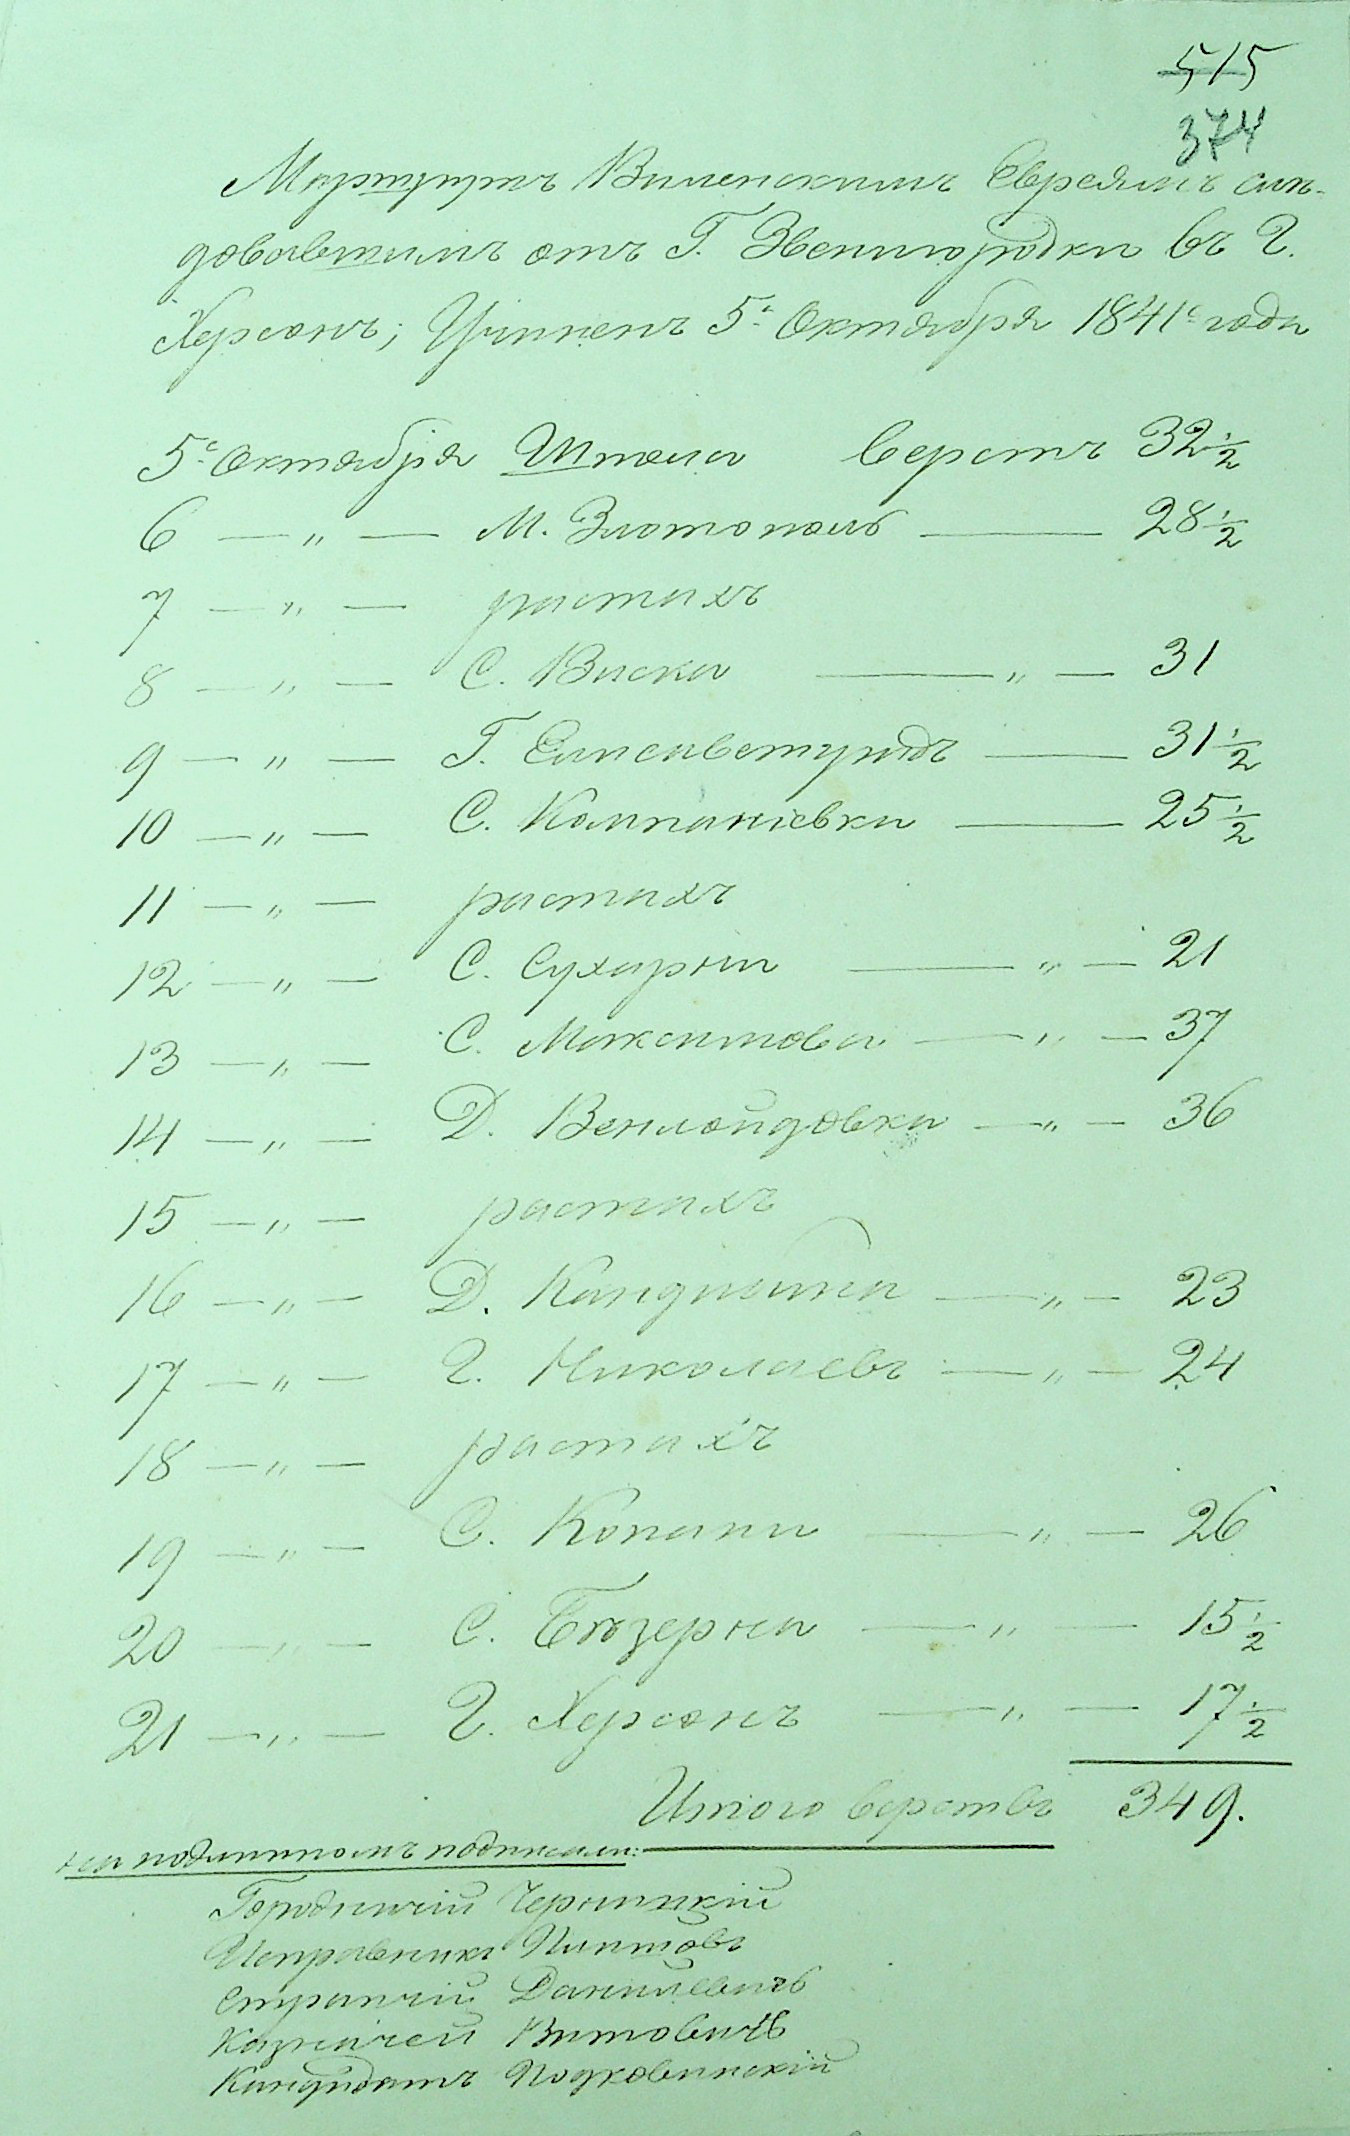 515
374
Маршрутъ Виленскимъ Евреямъ слѣ-
довавшимъ отъ Г. Звенигородки въ Г.
Херсонъ; Учиненъ 5го Октября 1841го года
5го Октября Шпола верстъ 32 1/2
6 — „ — М. Златополь — 28 1/2
7 — „ — растахъ
8 — „ — С. Виска — „ — 31
9 — „ — Г. Елисаветградъ — 31 1/2
10 — „ — С. Компаніевка — 25 1/2
11 — „ — растахъ
12 — „ — С. Сухарня — „ — 21
13 — „ — С. Максимова — „ — 37
14 — „ — Д. Венлойдовка — „ — 36
15 — „ — растахъ
16 — „ — Д. Кандыбина — „ — 23
17 — „ — Г. Николаевъ — „ — 24
18 — „ — растахъ
19 — „ — С. Копани — „ — 26
20 — „ — С. Бѣлозерка — „ — 15 1/2
21 — „ — Г. Херсонъ — „ — 17 1/2
Итого верствъ 349.
на подлинномъ подписали:
Городничій Черницкій
Исправникъ
Стряпчій Данилевичь
Казначей Витовичь
Кандидатъ Подковинскій